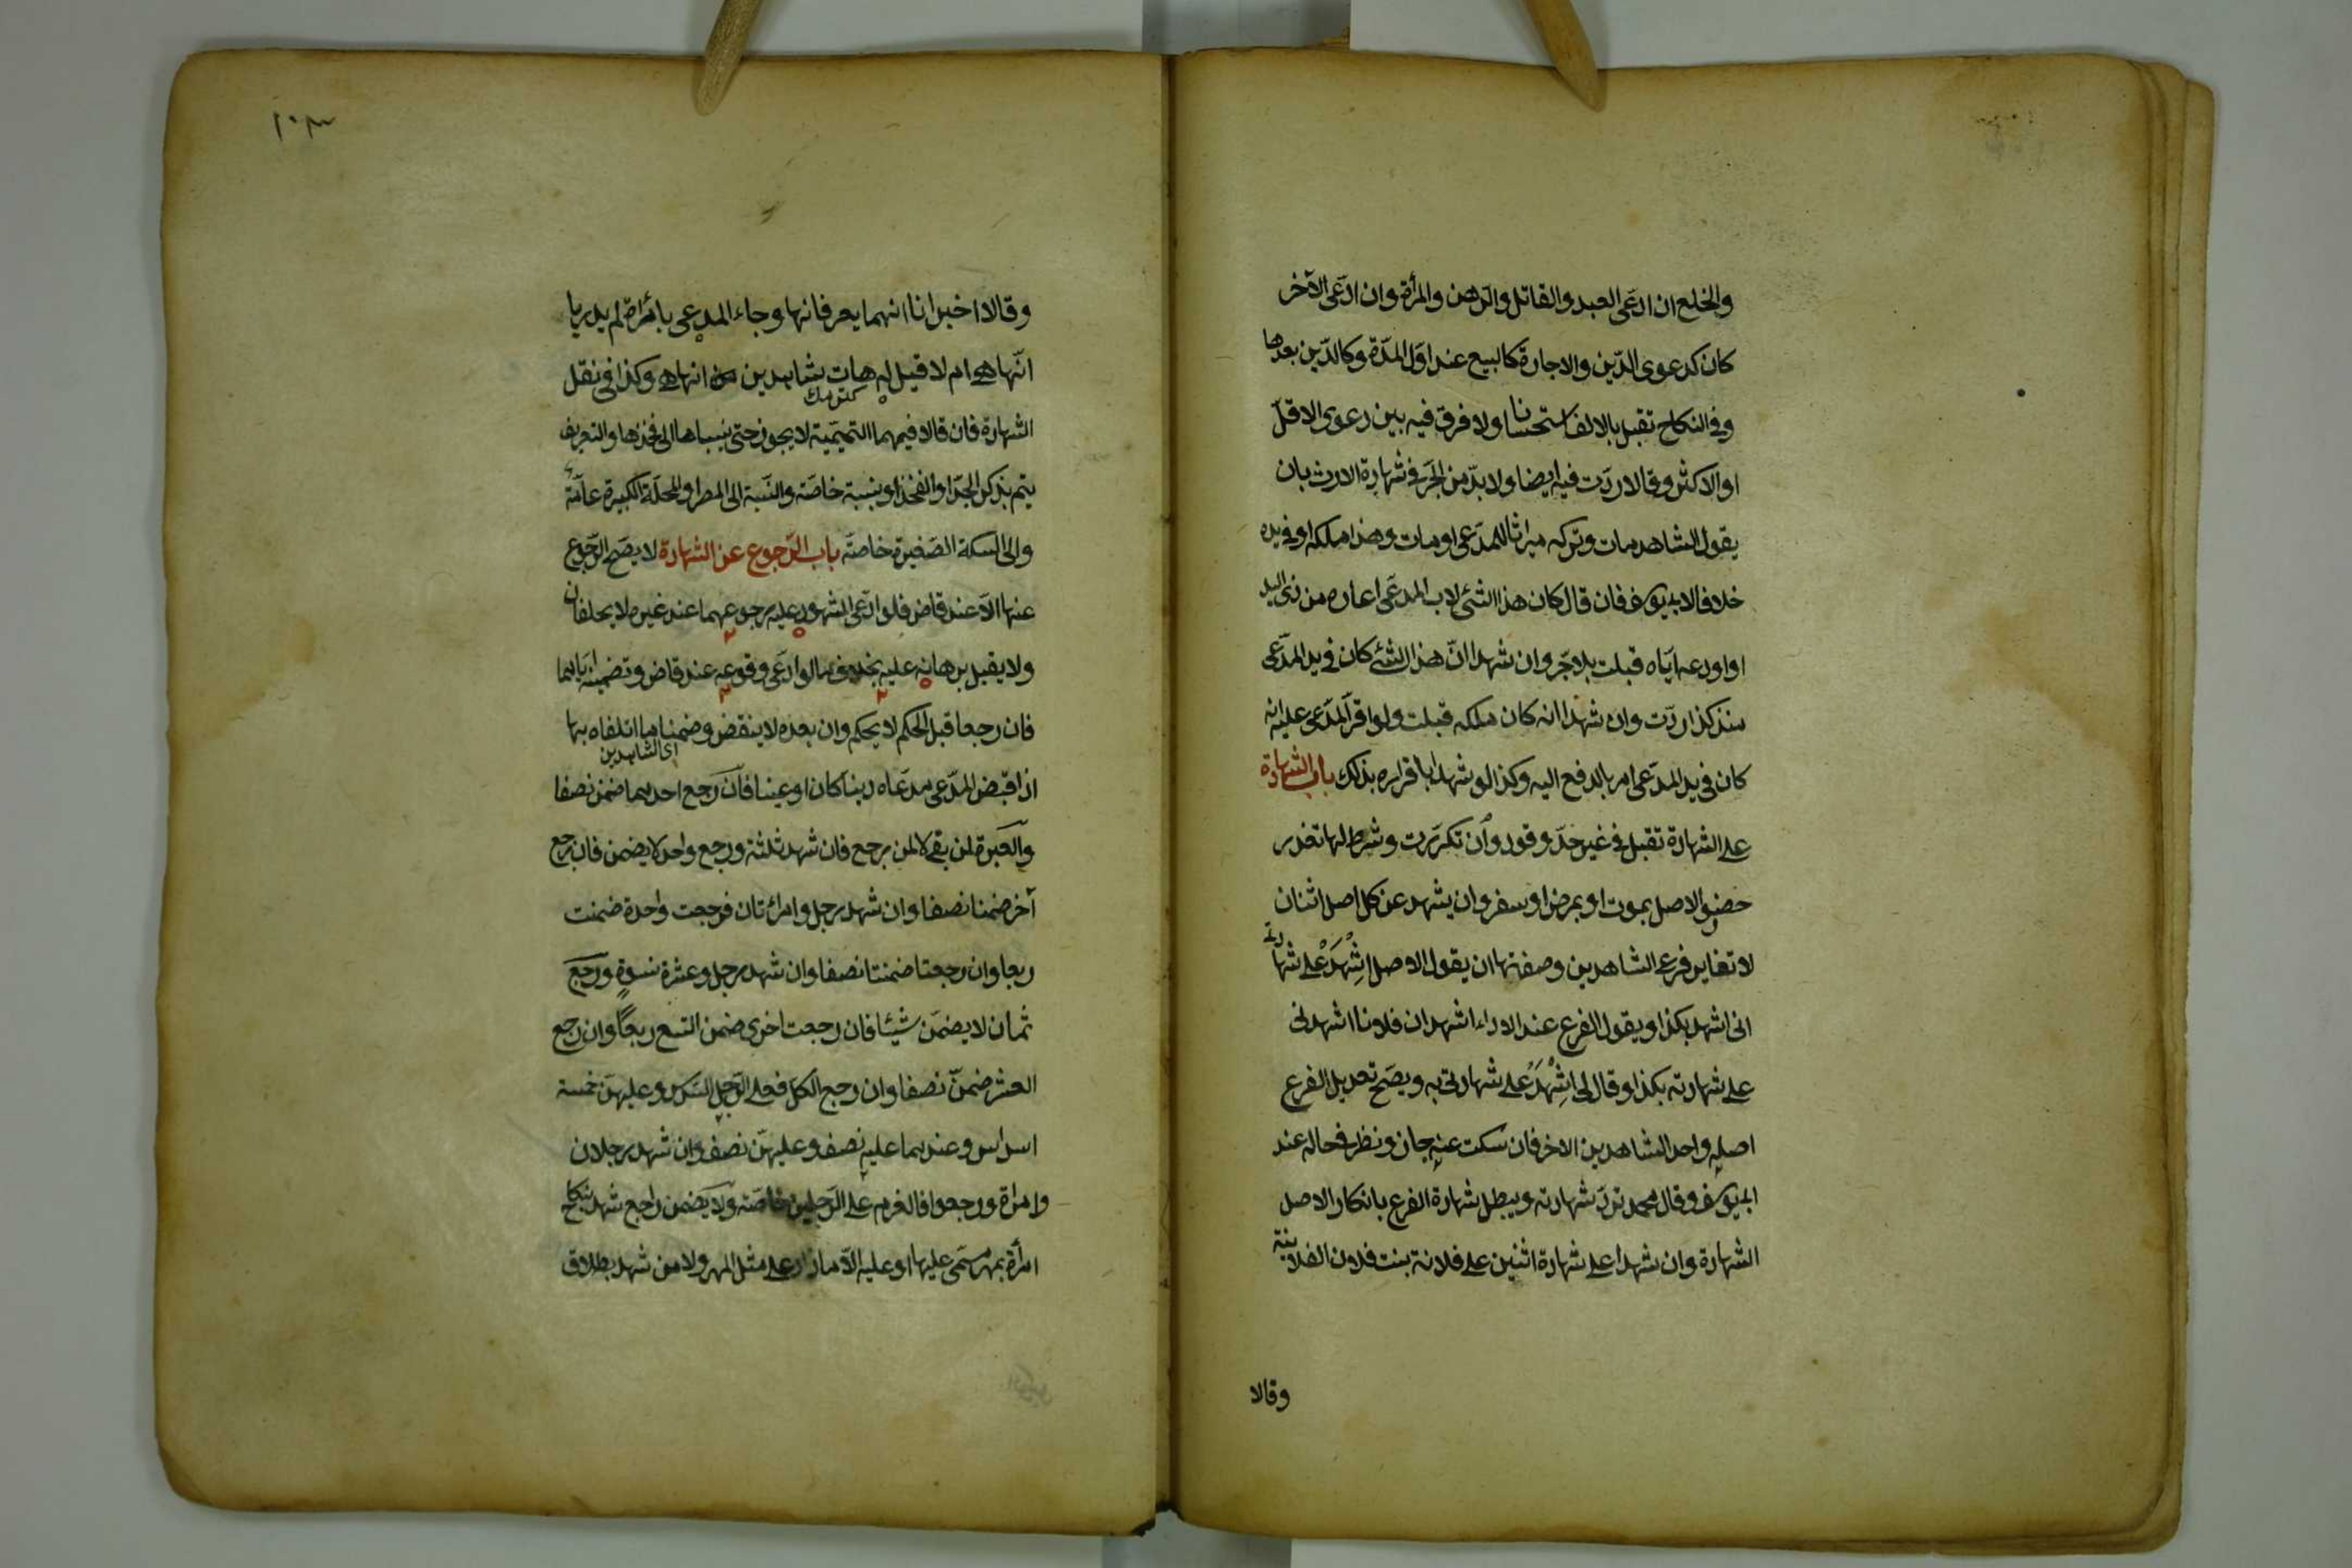 والخلع ان ادعى العبد والقاتل والرهن والمرأة وان ادعى الآخر
كان كدعوى الدّين والاجارة كالبيع عند اول المدّة وكالدّين بعدها
وفى النكاح تقبل بالالف استحسانا ولا فرق فيه بين دعوى الاقل
او الاكثر وقالا ردّت فيه ايضا ولا بدّ من الجرّ فى شهادة الارث بان
يقول الشاهد مات وتركه ميراثا للمدّعى او مات وهذا ملكه او فى يده
خلافا لابى يوسف فان قال كان هذا الشئ لاب المدعى اعاره من ذى اليد
او اودعه ايّاه قبلت بلا جرّ وان شهدا انّ هذا الشئ كان فى يد المدّعى
منذ كذا ردّت وان شهدا انه كان ملكه قبلت ولو اقرّ المدّعى عليه انه
كان فى يد المدّعى امر بالدفع اليه وكذا لو شهدا باقراره بذلك باب الشهادة
على الشهادة تقبل فى غير حدّ وقود وان تكرّرت وشرط لها تعذر
حضور الاصل بموت او بمرض او سفر وان يشهد عن كل اصل اثنان
لا تغاير فرعى الشاهدين وصفتها ان يقول الاصل اشْهَدْ على شهادتى
انى اشهد بكذا ويقول الفرع عند الاداء اشهد ان فلانا اشهدنى
على شهادته بكذا وقال لى اشْهَدْ على شهادتى به ويصحّ تعديل الفرع
اصله واحد الشاهدين الاخر فان سكت عنه جاز ونظر فى حاله عند
ابى يوسف وقال محمد تردّ شهادته ويبطل شهادة الفرع بانكار الاصل
الشهادة وان شهدا على شهادة اثنين على فلانة بنت فلان الفلانية
وقالا
١٠٣
وقالا اخبرانا انهما يعرفانها وجاء المدعى بامرأة لم يدريا
انّها هى ام لا قيل له هات شاهدين انها هى وكذا فى نقل
الشهادة فان قالا فيهما التميمية لا يجوز حتى ينسباها الى فخذها والتعريف
يتم بذكر الجدّ او الفخذ او بنسبة خاصة والنسبة الى المصر او المحلّة الكبيرة عامّة
والى السكة الصغيرة خاصة باب الرّجوع عن الشهادة لا يصحّ الرّجوع
عنها الّا عند قاض فلو ادّعى المشهود عليه رجوعهما عند غيره لا يحلفان
ولا يقبل برهانه عليه بخلاف ما لو ادّعى وقوعه عند قاض وتضمينه ايّاهما
فان رجعا قبل الحكم لا يحكم وان بعده لا ينقض وضمنا ما اتلفاه بها
اى الشاهدين
اذا قبض المدّعى مدّعاه دينا كان او عينا فان رجع احدهما ضمن نصفا
والعبرة لمن بقى لا لمن رجع فان شهد ثلثة ورجع واحد لا يضمن فان رجع
آخر ضمنا نصفا وان شهد رجل وامرأتان فرجعت واحدة ضمنت
ربعا وان رجعتا ضمنتا نصفا وان شهد رجل وعشرة نسوة ورجع
ثمان لا يضمنّ شيئا فان رجعت اخرى ضمن التسع ربعًا وان رجع
العشر ضمنّ نصفا وان رجع الكل فعلى الرّجل السّدس وعليهنّ خمسة
اسداس وعندهما عليه نصف وعليهنّ نصف وان شهد رجلان
وامرأة ورجعوا فالغرم على الرّجلين خاصّة ولا يضمن راجع شهد بنكاح
امرأة بمهر مسمّى عليها او عليه الّا ما زاد على مثل المهر ولا من شهد بطلاق